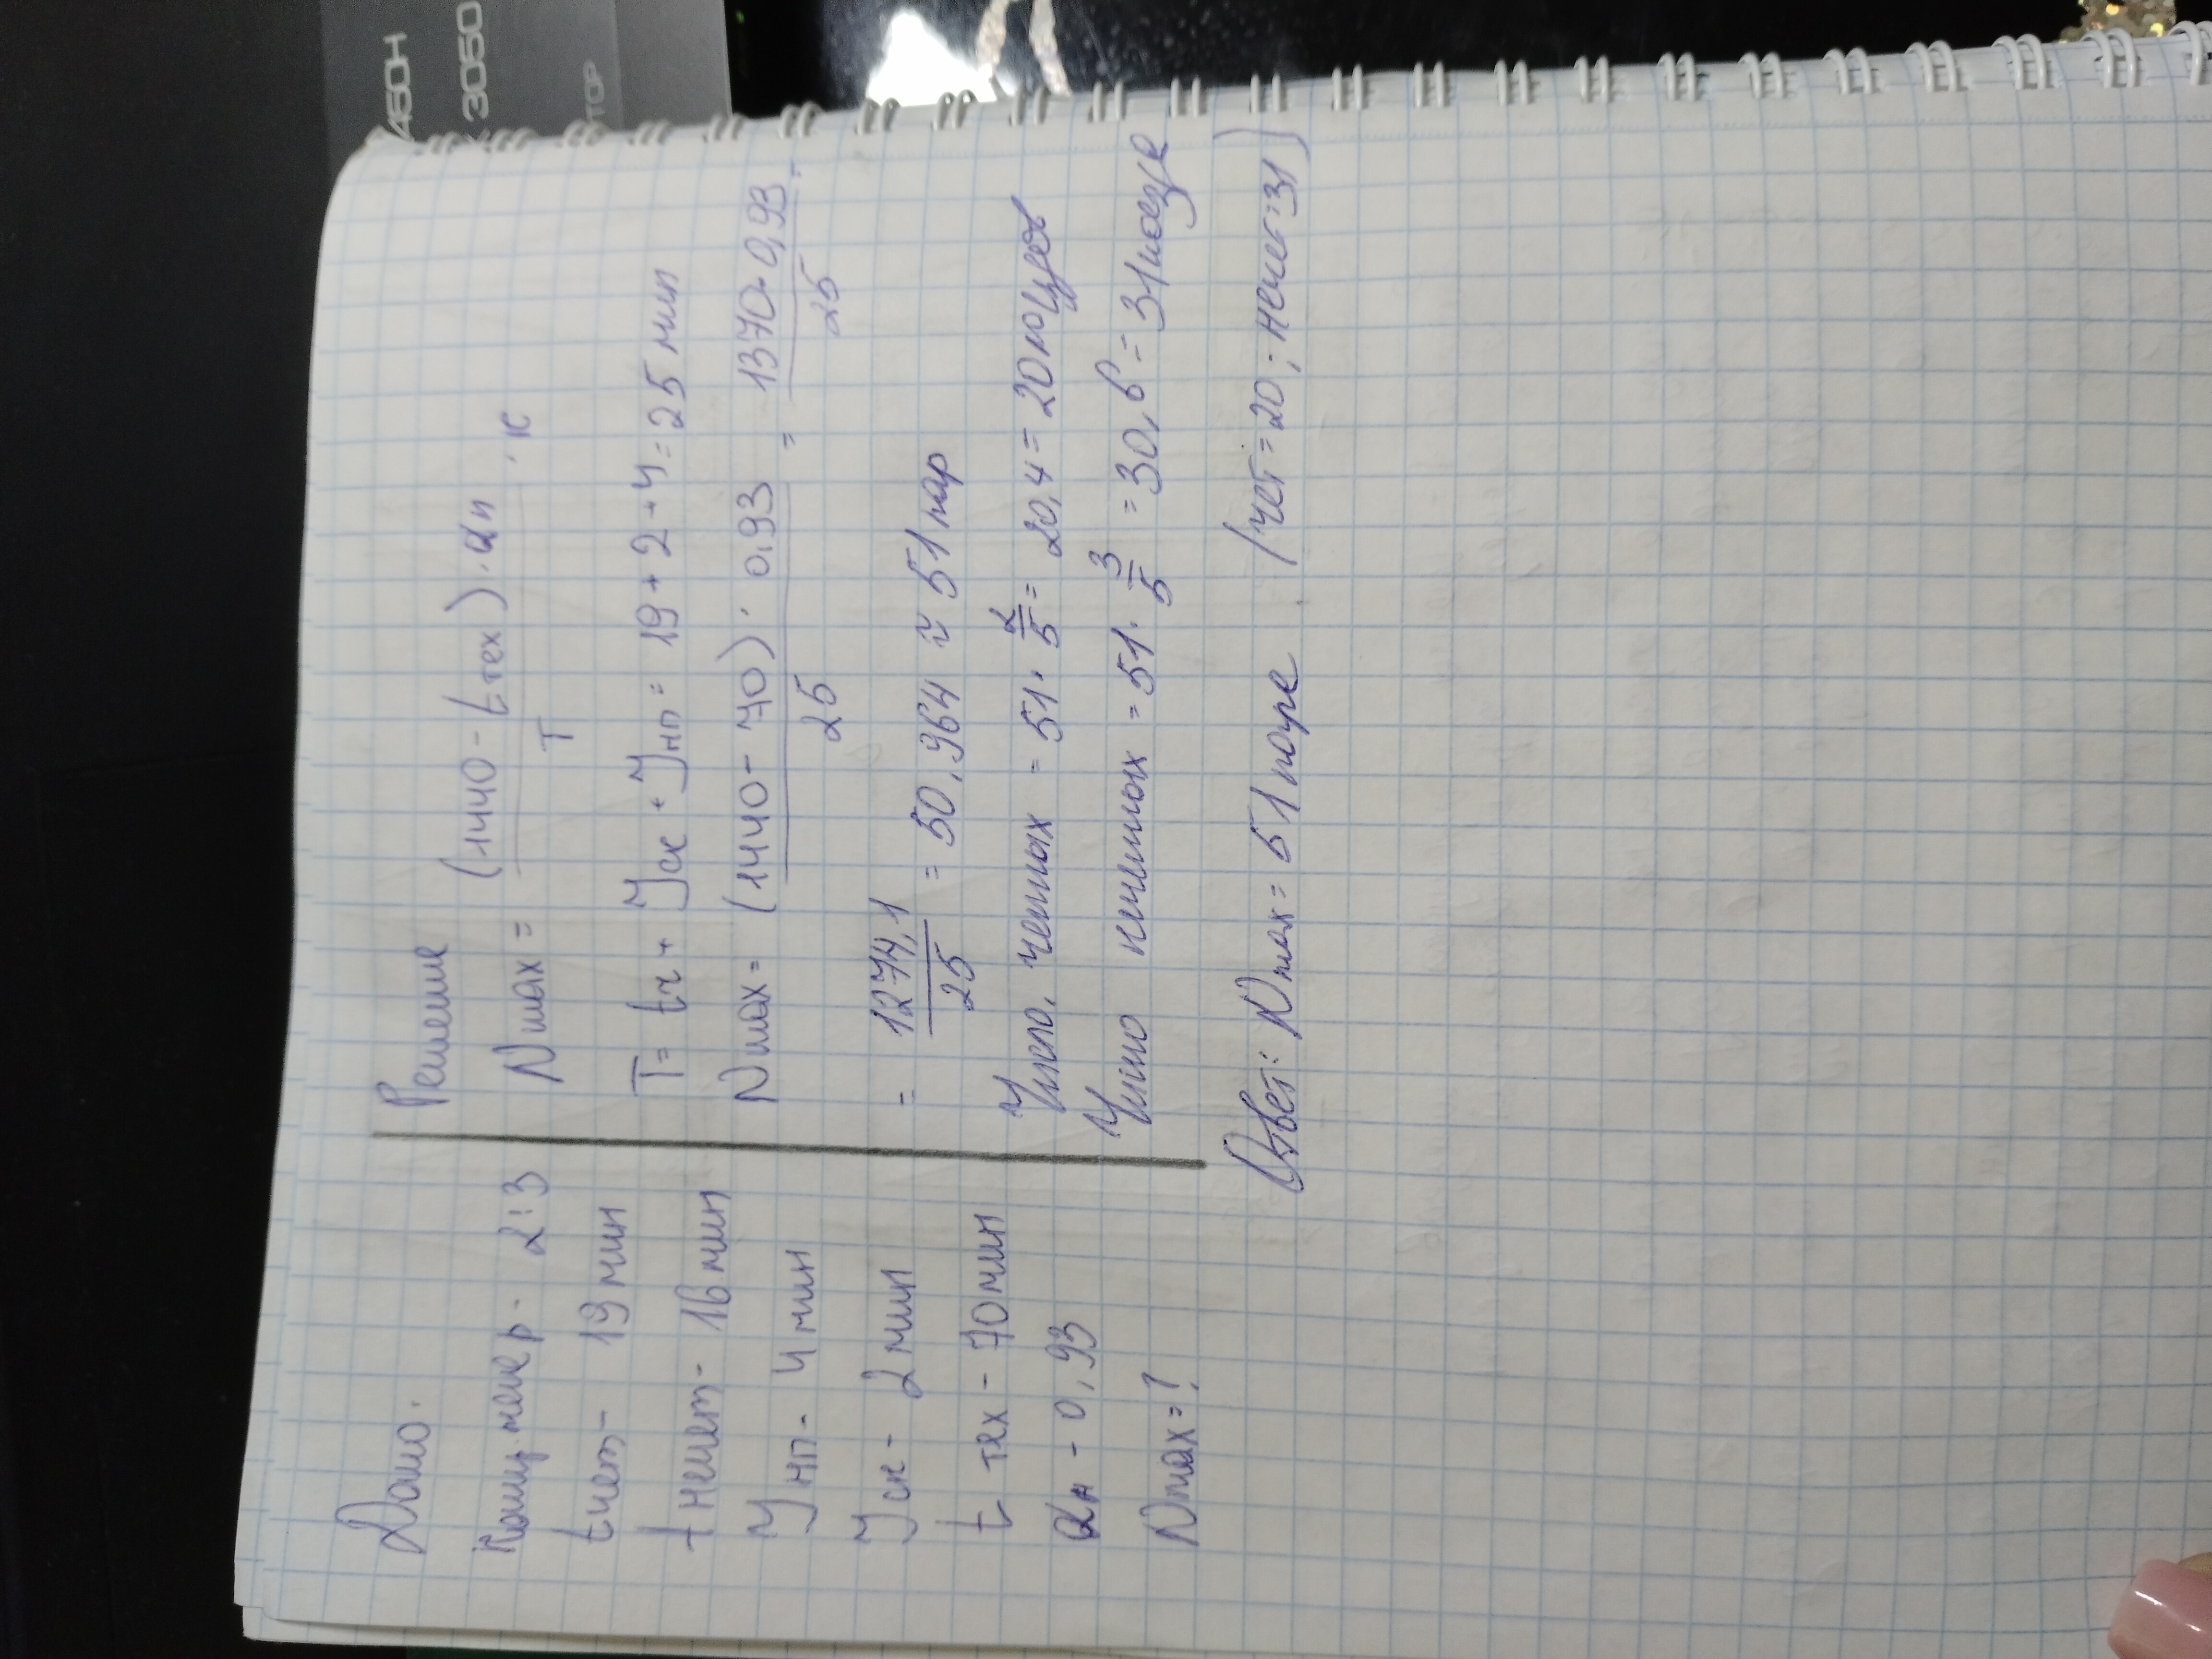 450H
X 3050
Дано.
Коэц непер - 2:3
tчет - 19 мин
tнечет - 16 мин
Jнп - 4 мин
Jск - 2 мин
t тех - 70 мин
αн - 0,93
Nmax = ?
Решение
Nmax = (1440 - tтех) · αн / T · к
T = tч + Jск + Jнп = 19 + 2 + 4 = 25 мин
Nmax = (1440 - 70) · 0,93 / 25 = 1370 · 0,93 / 25 =
= 1274,1 / 25 = 50,964 ≈ 51 пар
Число четных = 51 · 2/5 = 20,4 = 20
Число нечетных = 51 · 3/5 = 30,6 = 31
Ответ: Nmax = 51 (чет = 20; нечет = 31)